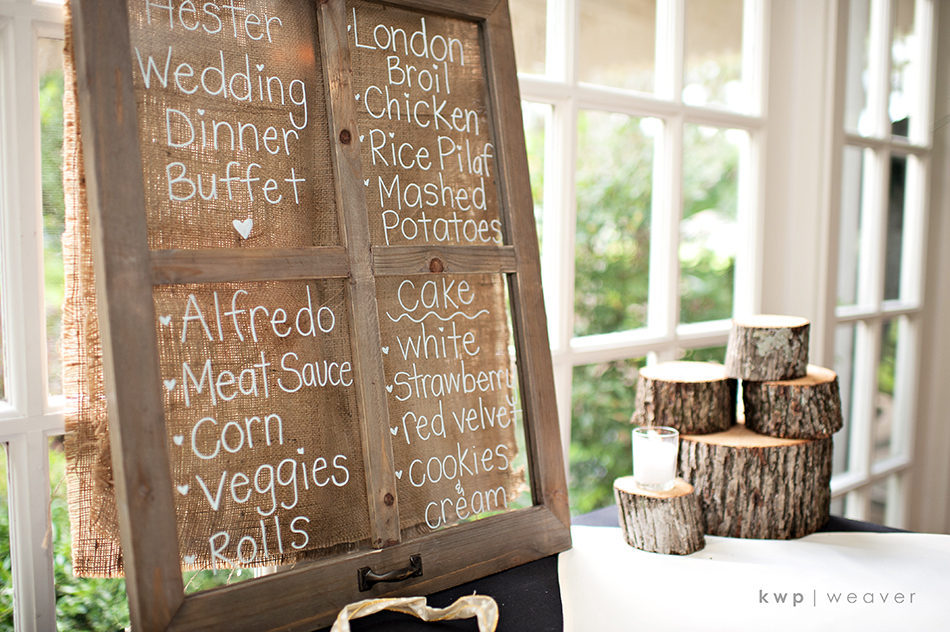 Hester
Wedding
Dinner
Buffet
London
Broil
Chicken
Rice Pilaf
Mashed
Potatoes
Alfredo
Meat Sauce
Corn
Veggies
Rolls
Cake
white
strawberry
red velvet
cookies
&
cream
kwp | weaver